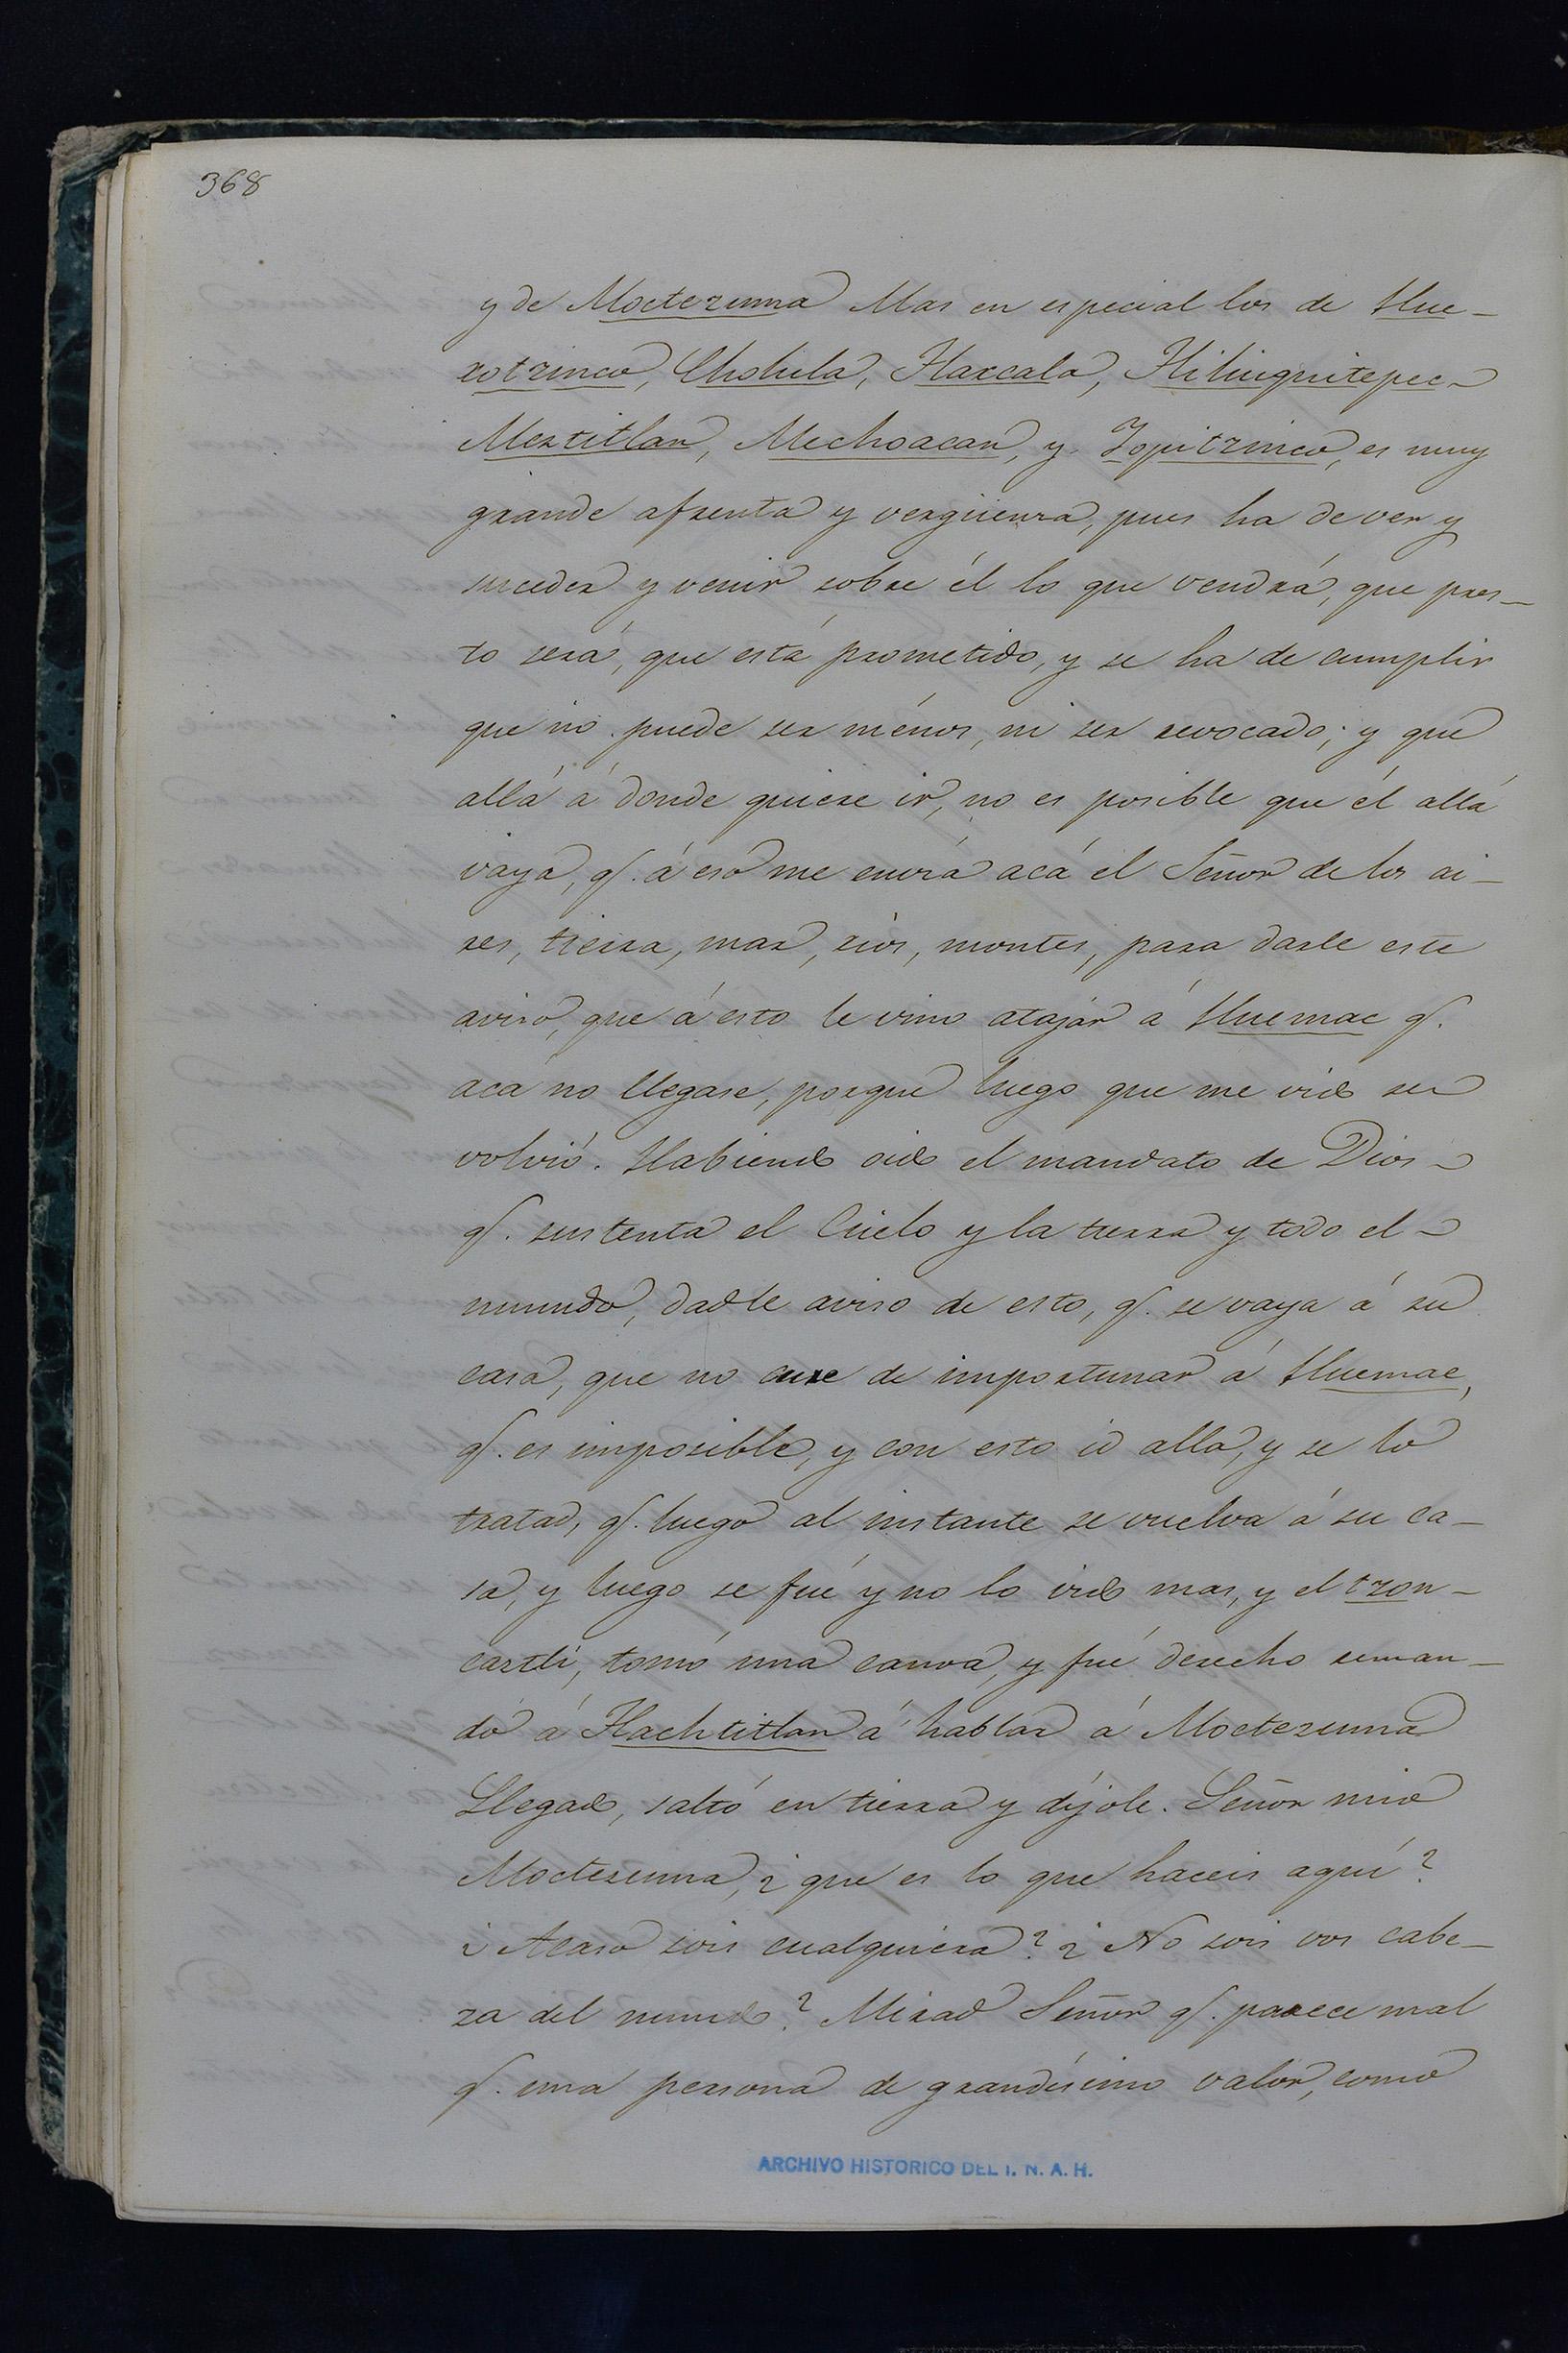 368
y de Moctezuma Mas en especial los de Hue-
xotzinco, Cholula, Tlaxcala, Tliliuquitepec
Meztitlan, Mechoacan, y Yopitzinco, es muy
grande afrenta y vergüenza, pues ha de ver y
suceder y venir sobre él lo que vendrá, que pres-
to será, que está prometido, y se ha de cumplir
que no puede ser ménos, ni ser revocado; y que
allá á donde quiere ir, no es posible que él allá
vaya, q. á eso me envia acá el Señor de los ai-
res, tierra, mar, rios, montes, para darle este
aviso, que á esto le vino atajar á Huemac q.
acá no llegase, porque luego que me vido se
volvió. Habiendo oido el mandato de Dios
q. sustenta el Cielo y la tierra y todo el
mundo, dadle aviso de esto, q. se vaya á su
casa, que no cure de importunar á Huemac,
q. es imposible, y con esto id allá, y se lo
tratad, q. luego al instante se vuelva á su ca-
sa, y luego se fué y no lo vido mas, y el tzon-
caztli, tomó una canoa, y fué derecho reman-
do á Tlachtitlan á hablar á Moctezuma
Llegado, saltó en tierra y díjole. Señor mio
Moctezuma, ¿que es lo que haceis aquí?
¿Acaso sois cualquiera? ¿No sois vos cabe-
za del mundo? Mirad Señor q. parece mal
q. una persona de grandísimo valor, como
ARCHIVO HISTORICO DEL I. N. A. H.